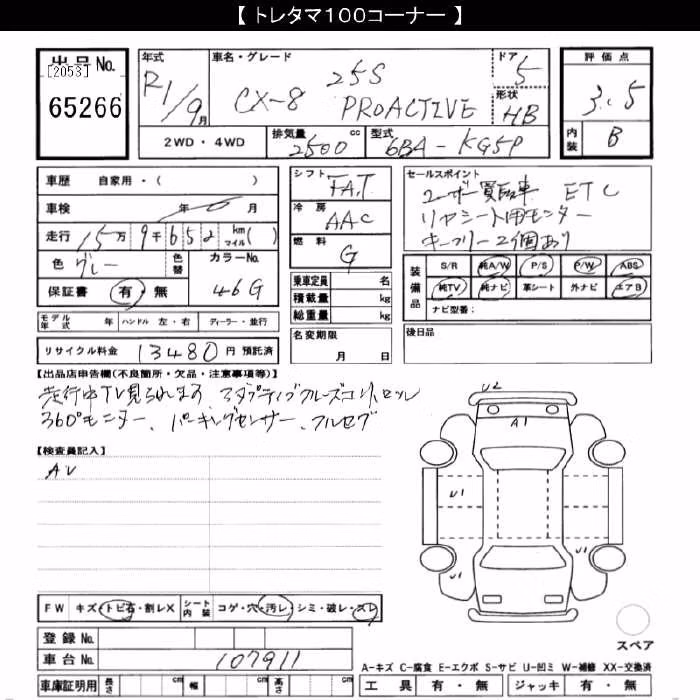 【 トレタマ100コーナー 】
出品No.
[2053]
65266
年式
R1/9月
車名・グレード
CX-8 25S
PROACTIVE
ドア
5
形状
HB
評価点
3.5
内装
B
2WD・4WD
排気量
2500 cc
型式
6BA-KG5P
車歴 自家用・( )
車検 年 月
走行 15万9千652 km マイル( )
色 グレー
色替
カラーNo.
46G
保証書 有・無
モデル年式 年
ハンドル 左・右
ディーラー・並行
リサイクル料金 13480 円 預託済
シフト
FAT
冷房
AAC
燃料
G
乗車定員 名
積載量 kg
総重量 kg
名変期限
月 日
セールスポイント
ユーザー買取車 ETC
リヤシート用モニター
キーフリー2個あり
装備品
S/R 純A/W P/S P/W ABS
純TV 純ナビ 革シート 外ナビ エアB
ナビ型番:
後日品
【出品店申告欄(不良箇所・欠品・注意事項等)】
走行中TV見られます、アダプティブクルーズコントロール
360°モニター、パーキングセンサー、フルセグ
【検査員記入】
AU
U2
A1
U1
U1
U1
FW キズ・トビ石・割レX
シート内装 コゲ・穴・汚レ・シミ・破レ・スレ
登録No.
車台No. 107911
車庫証明用 長さ cm 幅 cm 高さ cm
スペア
A-キズ C-腐食 E-エクボ S-サビ U-凹ミ W-補修 XX-交換済
工具 有・無 ジャッキ 有・無